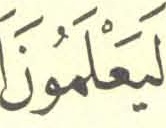 لَيَعْلَمُونَ